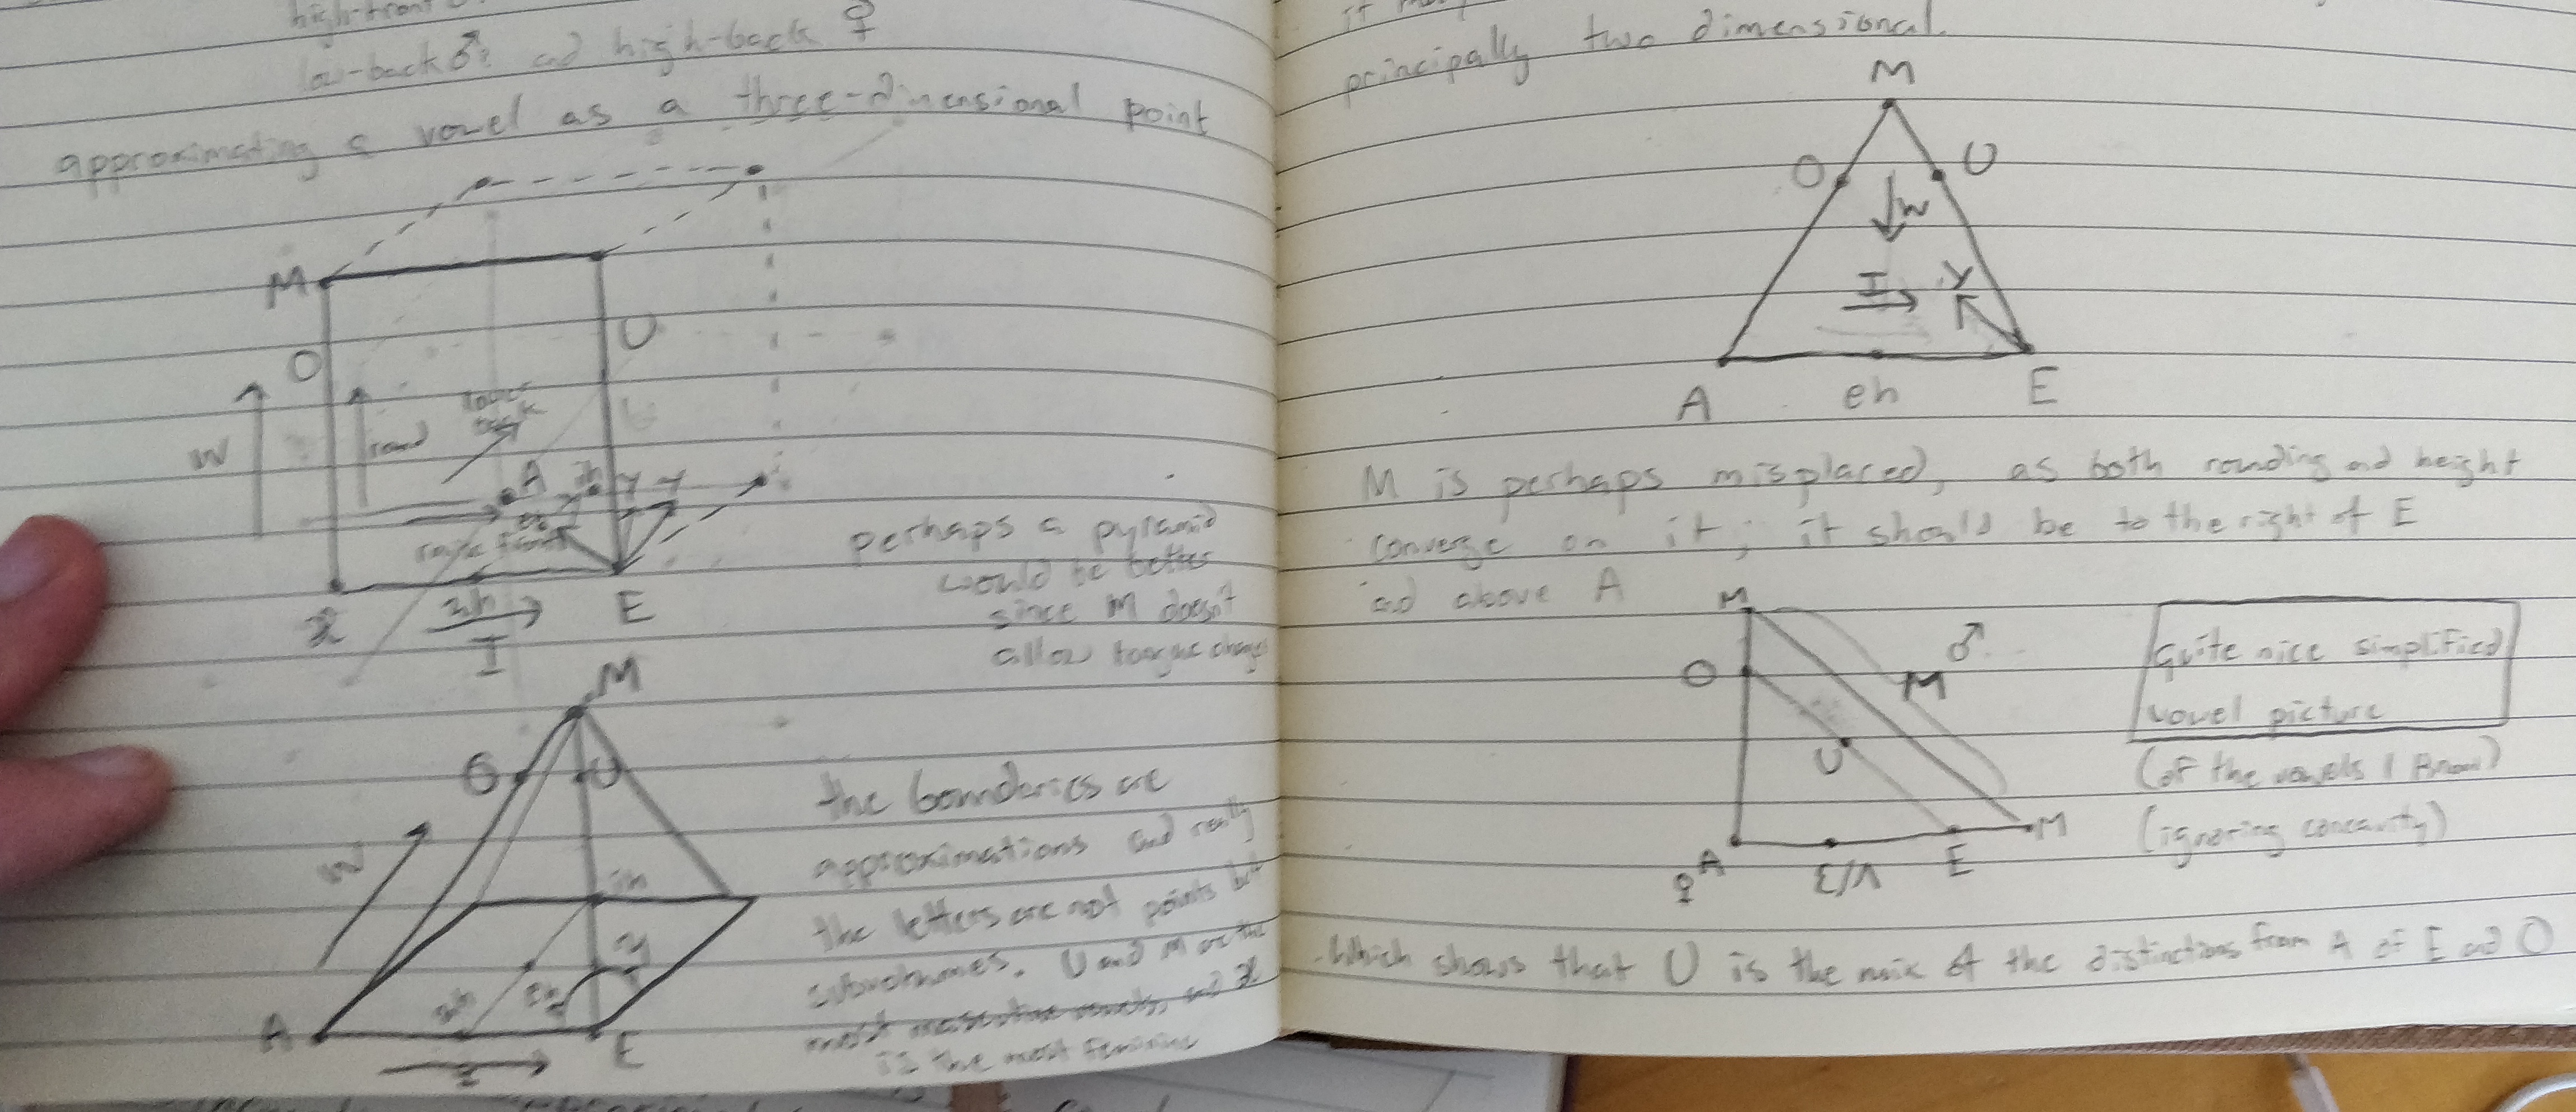 high-front
low-back ♂? and high-back ♀
approximating a vowel as a three-dimensional point
M
O
U
W
round
lower
back
A
ih
Y Y
raise front
æ
3h
I
E
perhaps a pyramid
would be better
since M doesn't
allow tongue change
M
O
U
W
ih
A
E
I
the boundaries are
approximations and really
the letters are not points but
subvolumes. U and M are the
most masculine vowels, and æ
is the most feminine
principally two dimensional.
M
O
U
W
I
Y
A
eh
E
M is perhaps misplaced, as both rounding and height
converge on it; it should be to the right of E
and above A
M
♂
O
M
U
M
A
♀
3/Λ
E
quite nice simplified
vowel picture
(of the vowels I know)
(ignoring concavity)
Which shows that U is the mix of the distinctions from A of E and O